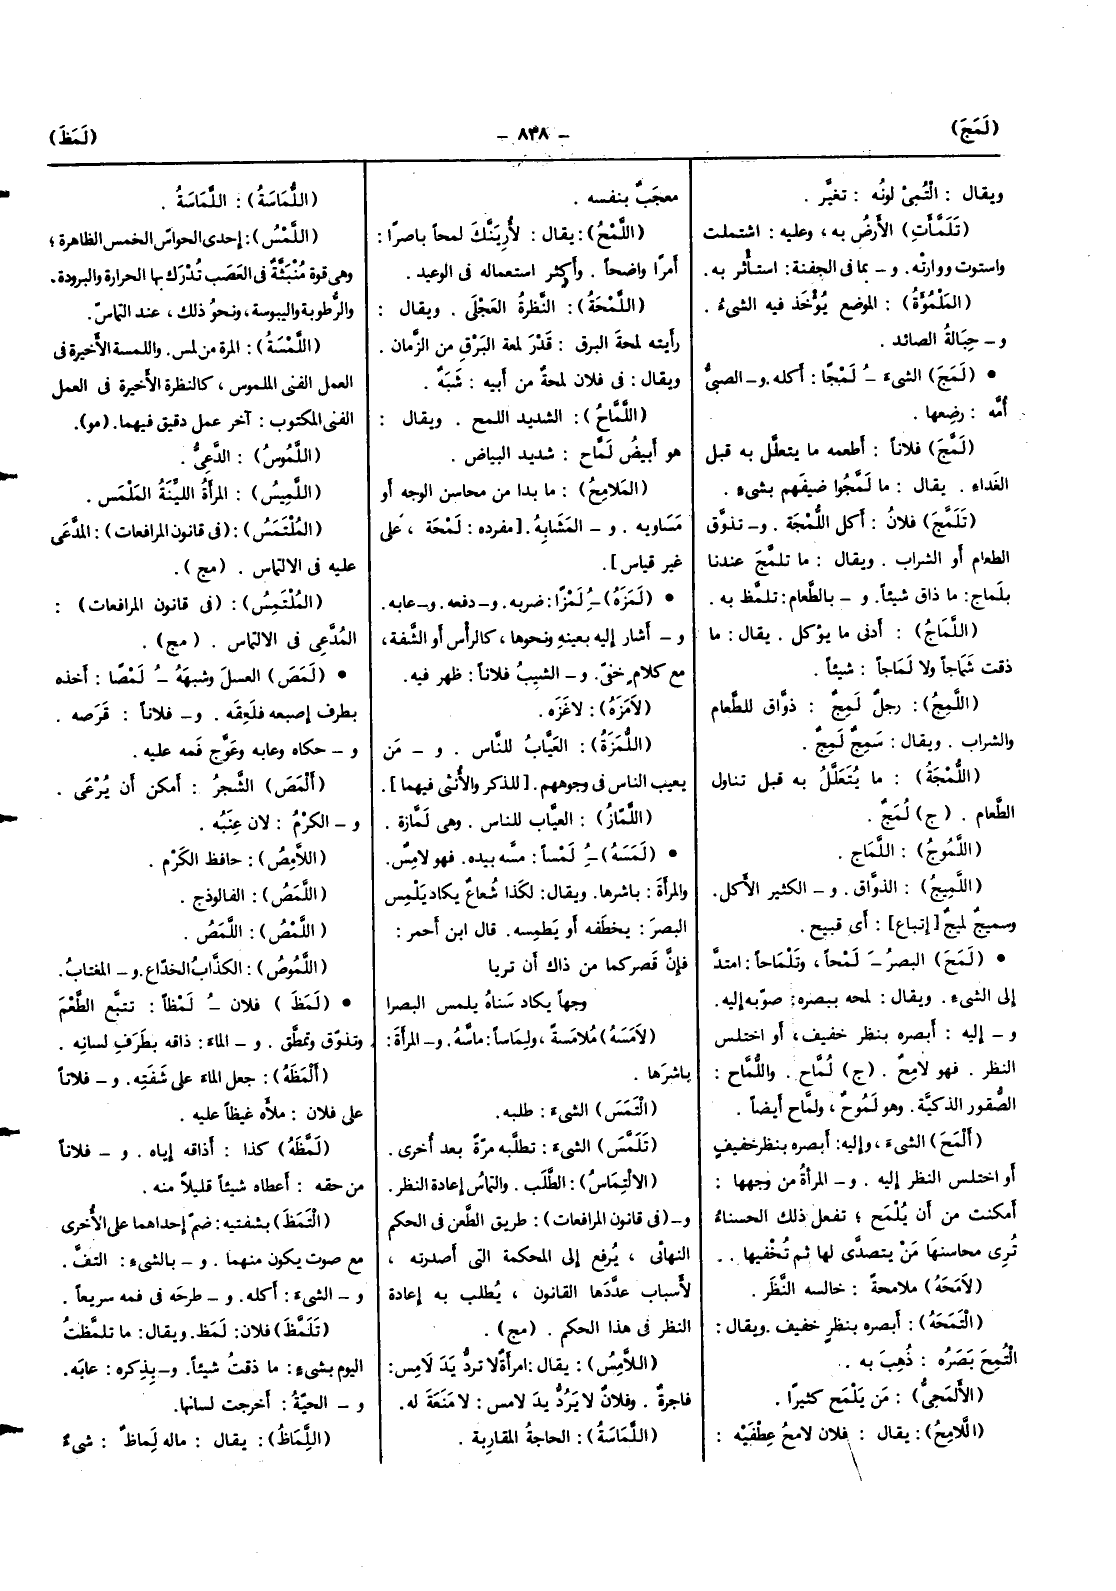 (لَمَجَ)
– ٨٣٨ –
(لَمَظَ)
ويقال : الْتُمِئْ لونُه : تغيَّر .
(تَلَمَّأَتِ) الأَرضُ به ، وعليه : اشتملت
واستوت ووارته. و – بما فى الجفنة : استأْثر به .
(المَلْمُؤَةُ) : الموضع يُؤْخَذ فيه الشىءُ .
و – حِبَالةُ الصائد .
• (لَمَجَ) الشىءَ ـُ لَمْجًا : أكله . و – الصبىُّ
أُمَّه : رضِعها .
(لَمَّجَ) فلاناً : أطعمه ما يتعلَّل به قبل
الغَداء . يقال : ما لَمَّجُوا ضيفَهم بشىء .
(تَلَمَّجَ) فلانٌ : أكل اللُّمْجَة . و – تذوَّق
الطعام أو الشراب . ويقال : ما تلمَّجَ عندنا
بلَماج : ما ذاق شيئاً. و – بالطَّعام : تلمَّظ به .
(اللَّمَاجُ) : أدنى ما يؤكل . يقال : ما
ذقت شَمَاجاً ولا لَمَاجاً : شيئاً .
(اللَّمِجُ) : رجلٌ لَمِجٌ : ذوَّاق للطَّعام
والشراب . ويقال : سَمِجٌ لَمِجٌ .
(اللُّمْجَةُ) : ما يُتَعَلَّلُ به قبل تناول
الطَّعام . (ج) لُمَجٌ .
(اللَّمُوجُ) : اللَّمَاج .
(اللَّمِيجُ) : الذوَّاق . و – الكثير الأكل .
وسميجٌ لميجٌ [إتباع] : أى قبيح .
• (لَمَحَ) البصرُ ـَ لَمْحاً ، وتَلْمَاحاً : امتدَّ
إلى الشىء . ويقال : لمحه ببصره : صوّبه إليه .
و – إليه : أبصره بنظر خفيف ، أو اختلس
النظر . فهو لامِحٌ . (ج) لُمَّاح . واللُّمَّاح :
الصُّقور الذكيَّة . وهو لَمُوحٌ ، ولمَّاح أيضاً .
(أَلْمَحَ) الشىءَ ، وإليه : أبصره بنظر خفيفٍ
أو اختلس النظر إليه . و – المرأةُ من وجهها :
أمكنت من أن يُلْمَح ؛ تفعل ذلك الحسناءُ
تُرِى محاسنهَا مَنْ يتصدَّى لها ثم تُخْفيها .
(لاَمَحَهُ) ملامحةً : خالسه النَّظَر .
(الْتَمَحَهُ) : أبصره بنظرٍ خفيف . ويقال :
الْتُمِحَ بَصَرُه : ذُهِبَ به .
(الأَلمَحِىُّ) : مَن يَلْمَح كثيرًا .
(الَّلامِحُ) : يقال : فلان لامحُ عِطْفَيْه :
معجَبٌ بنفسه .
(اللَّمْحُ) : يقال : لأُرِيَنَّكَ لمحاً باصرًا :
أمرًا واضحاً . وأكثر استعماله فى الوعيد .
(اللَّمْحَةُ) : النَّظرةُ العَجْلَى . ويقال :
رأيته لمحةَ البرق : قَدْرَ لمعة البَرْقِ من الزَّمان .
ويقال : فى فلان لمحةٌ من أبيه : شَبَهٌ .
(اللَّمَّاحُ) : الشديد اللمح . ويقال :
هو أبيضُ لَمَّاح : شديد البياض .
(المَلامِحُ) : ما بدا من محاسن الوجه أو
مَسَاويه . و – المَشَابِهُ . [مفرده : لَمْحَة ، على
غير قياس] .
• (لَمَزَهُ) ـِـُ لَمْزًا : ضربه . و – دفعه . و – عابه .
و – أشار إليه بعينهِ ونحوها ، كالرأْس أو الشَّفة ،
مع كلام خفىّ. و – الشيبُ فلاناً : ظهر فيه .
(لاَمَزَهُ) : لاغَزَه .
(اللُّمَزَةُ) : العَيَّابُ للنَّاس . و – مَن
يعيب الناس فى وجوههم. [للذكر والأُنثى فيهما] .
(اللَّمّازُ) : العيَّاب للناس . وهى لَمَّازة .
• (لَمَسَهُ) ـُـِ لَمْساً : مسَّه بيده. فهو لامِسٌ.
والمرأةَ : باشرها. ويقال : لكَذا شُعاعٌ يكاد يَلْمِس
البصرَ : يخطَفه أو يَطمِسه. قال ابن أحمر :
فإنَّ قَصركما من ذاك أن تريا
وجهاً يكاد سَناهُ يلمس البصرا
(لاَمَسَهُ) مُلامَسةً ، ولِمَاساً : ماسَّهُ . و – المرأةَ :
باشرَها .
(الْتَمَسَ) الشىءَ : طلبه .
(تَلَمَّسَ) الشىءَ : تطلَّبه مرّةً بعد أُخرى .
(الالْتِماسُ) : الطَّلَب . والتماسُ إعادة النظر.
و – (فى قانون المرافعات) : طريق الطَّعن فى الحكم
النهائى ، يُرفع إلى المحكمة التى أصدرته ،
لأَسباب عدَّدَها القانون ، يُطلب به إعادة
النظر فى هذا الحكم . (مج) .
(اللاَّمِسُ) : يقال : امرأَةٌ لا تردُّ يَدَ لامِس :
فاجرةٌ . وفلانٌ لا يَرُدُّ يدَ لامس : لا مَنَعَةَ له .
(اللَّمَاسَةُ) : الحاجةُ المقاربة .
(اللُّمَاسَةُ) : اللَّمَاسَةُ .
(اللَّمْسُ) : إحدى الحواسّ الخمس الظاهرة ؛
وهى قوة مُنْبَثَّةٌ فى العَصَب تُدْرَك بها الحرارة والبرودة،
والرُّطوبة واليبوسة ، ونحوُ ذلك ، عند التماسّ.
(اللَّمْسَةُ) : المرة من لمس. واللمسة الأَخيرة فى
العمل الفنى الملموس ، كالنظرة الأَخيرة فى العمل
الفنى المكتوب : آخر عمل دقيق فيهما. (مو).
(اللَّمُوسُ) : الدَّعِىُّ .
(اللَّمِيسُ) : المرأَةُ الليِّنةُ المَلْمَس .
(المُلْتَمَسُ) : (فى قانون المرافعات) : المدَّعَى
عليه فى الالتماس . (مج) .
(المُلْتَمِسُ) : (فى قانون المرافعات) :
المُدَّعِى فى الالتماس . (مج) .
• (لَمَصَ) العسلَ وشبهَهُ ـُ لَمْصًا : أخذه
بطرف إصبعه فلَعِقَه . و – فلاناً : قَرَصه .
و – حكاه وعابه وعَوَّج فَمه عليه .
(أَلْمَصَ) الشَّجرُ : أمكن أن يُرْعَى .
و – الكَرْمُ : لان عِنَبُه .
(اللاَّمِصُ) : حافظ الكَرْم .
(اللَّمَصُ) : الفالوذج .
(اللَّمْصُ) : اللَّمَصُ .
(اللَّمُوصُ) : الكذَّابُ الخدّاع . و – المغتابُ .
• (لَمَظَ) فلان ـُ لَمْظاً : تتبَّع الطَّعْمَ
وتذوّق وتمطَّق . و – الماءَ : ذاقه بطَرَفِ لسانه .
(أَلْمَظَهُ) : جعل الماءَ على شَفَتِه . و – فلاناً
على فلان : ملأَه غيظاً عليه .
(لَمَّظَهُ) كذا : أذاقه إياه . و – فلاناً
من حقه : أعطاه شيئاً قليلاً منه .
(الْتَمَظَ) بشفتيه : ضمّ إحداهما على الأُخرى
مع صوت يكون منهما . و – بالشىء : التفَّ .
و – الشىءَ : أكله . و – طرحَه فى فمه سريعاً .
(تَلَمَّظَ) فلان : لَمَظ . ويقال : ما تلمَّظتُ
اليوم بشىء : ما ذقتُ شيئاً . و – بِذِكره : عابَه .
و – الحيّةُ : أخرجت لسانها .
(اللَّمَاظُ) : يقال : ماله لَماظٌ : شىءٌ